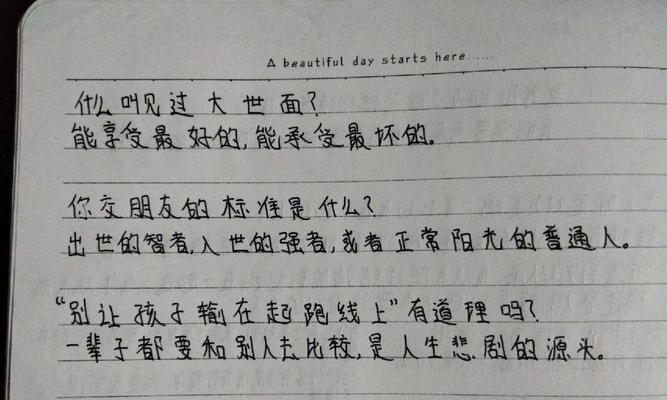 A beautiful day starts here......
什么叫见过大世面?
能享受最好的,能承受最坏的。
你交朋友的标准是什么?
出世的智者,入世的强者,或者正常阳光的普通人。
“别让孩子输在起跑线上”有道理吗?
一辈子都要和别人去比较,是人生悲剧的源头。